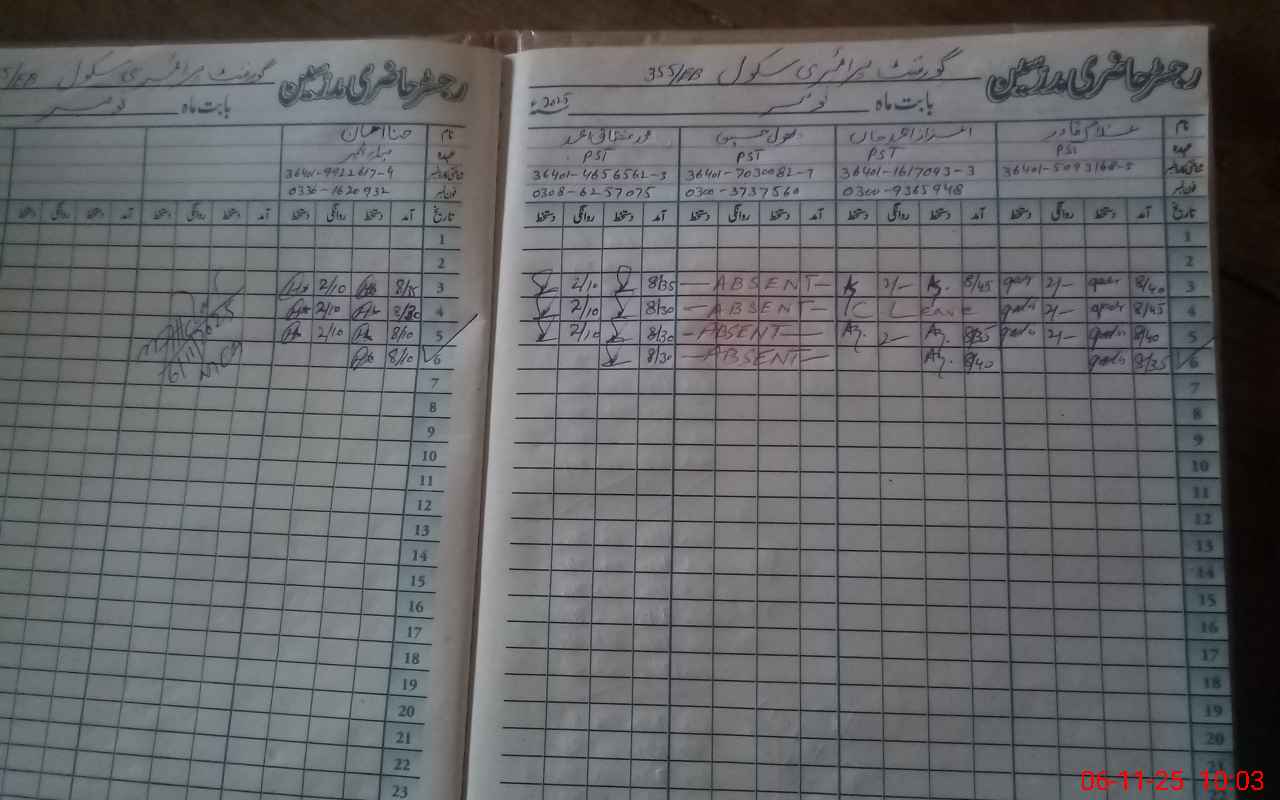 رجسٹر حاضری مدرسین گورنمنٹ پرائمری سکول 355/EB
بابت ماہ نومبر 2025ء
نام غلام قادر
عہدہ PST PST PST PST
شناختی کارڈ نمبر 36401-5093168-5 36401-1617093-3 36401-7030082-7 36401-4656562-3
فون نمبر 0300-9365948 0300-3737560 0308-6257075
تاریخ آمد دستخط روانگی دستخط آمد دستخط روانگی دستخط آمد دستخط روانگی دستخط آمد دستخط روانگی دستخط
1
2
3 8/40 2/- 8/45 2/- ABSENT 8/35 2/10
4 8/45 2/- C Leave ABSENT 8/30 2/10
5 8/40 2/- 8/35 2/- ABSENT 8/30 2/10
6 8/35 8/40 ABSENT 8/30
7
8
9
10
11
12
13
14
15
16
17
18
19
20
21
22
رجسٹر حاضری مدرسین گورنمنٹ پرائمری سکول
بابت ماہ نومبر
نام
عہدہ
شناختی کارڈ نمبر 36401-9922617-4
فون نمبر 0336-1620932
تاریخ آمد دستخط روانگی دستخط آمد دستخط روانگی دستخط آمد دستخط روانگی دستخط
1
2
3 8/15 2/10
4 2/10
5 8/10 2/10
6 8/10
7
8
9
10
11
12
13
14
15
16
17
18
19
20
21
22
23
06-11-25 10:03